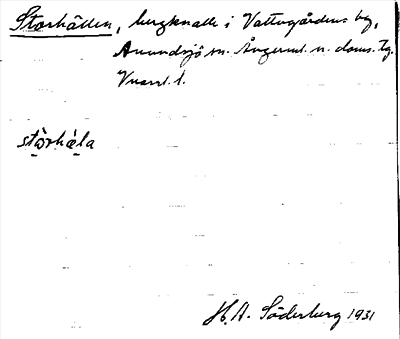 Storhällen, bergknalle i Vattugårdens by,
Anundsjö sn. Ångerml. n. doms. Tg.
l.
stòrhǽla
H. A. Söderberg 1931